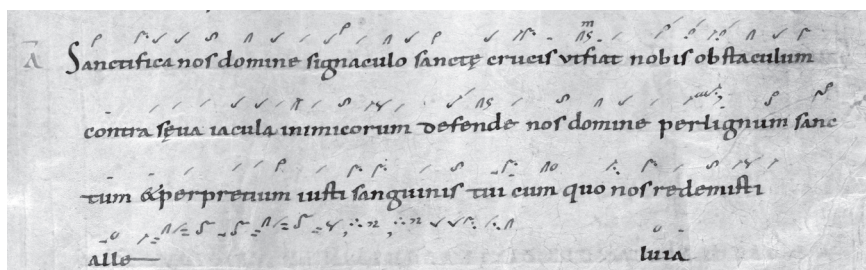 A Sanctifica nos domine signaculo sanctę crucis vt fiat nobis obstaculum
contra sęua iacula inimicorum defende nos domine per lignum sanc
tum & per pretium iusti sanguinis tui cum quo nos redemisti
alle luia